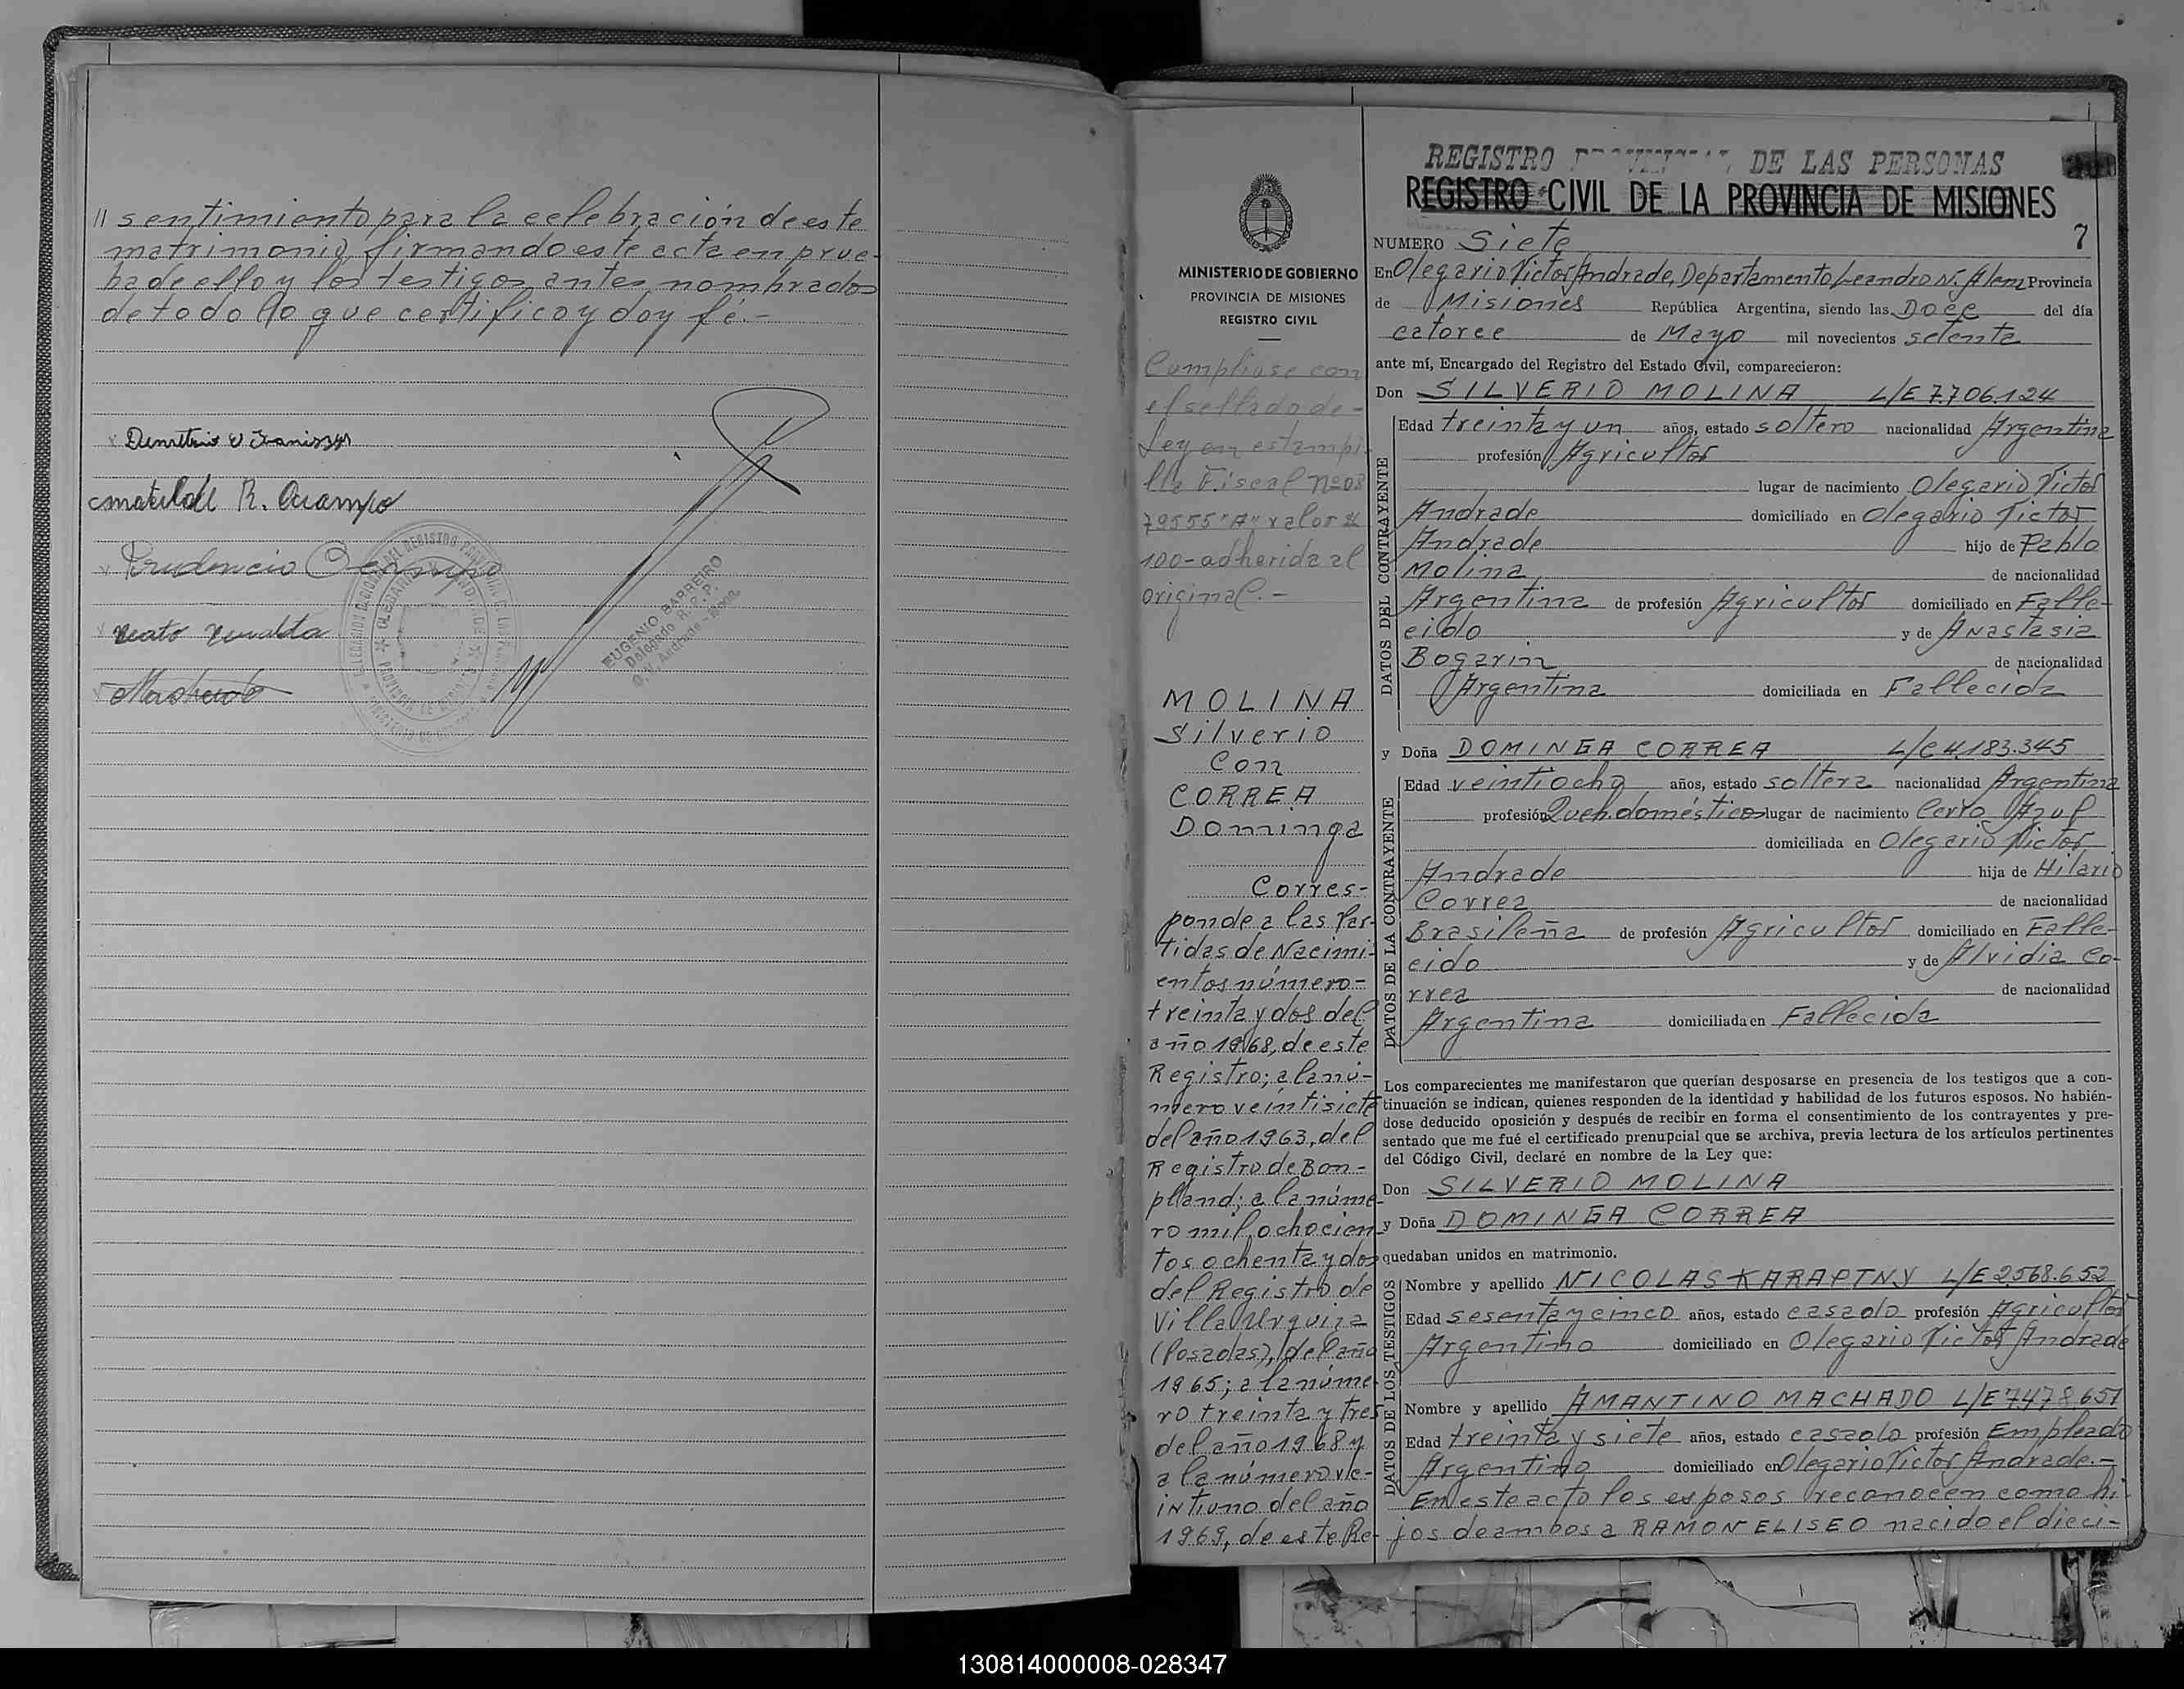 // sentimiento para la celebración de este
matrimonio, firmando este acta en prue-
ba de ello y los testigos antes nombrados
de todo lo que certifico y doy fé.-
Matilde R. Ocampo
Prudencio Ocampo
EUGENIO BARREIRO
Delegado R.P.P.
O.V. Andrade - Mnes.
MINISTERIO DE GOBIERNO
PROVINCIA DE MISIONES
REGISTRO CIVIL
Cumplióse con
el sellado de-
Ley en estampi-
lla Fiscal Nº 08
79555 "A" valor $
100- adherida al
original.-
MOLINA
Silverio
Con
CORREA
Dominga
Corres-
ponde a las Par-
tidas de Nacimi-
entos número-
treinta y dos del
año 1968, de este
Registro; a la nú-
mero veintisiete
del año 1963, del
Registro de Bon-
pland; a la núme-
ro mil ochocien-
tos ochenta y dos
del Registro de
Villa Urquiza
(Posadas), del año
1965; a la núme-
ro treinta y tres
del año 1968 y
a la número ve-
intiuno del año
1969, de este Re-
REGISTRO PROVINCIAL DE LAS PERSONAS
REGISTRO CIVIL DE LA PROVINCIA DE MISIONES
7
NUMERO Siete
En Olegario Victor Andrade, Departamento Leandro N. Alem Provincia
de Misiones República Argentina, siendo las Doce del día
catorce de Mayo mil novecientos setenta
ante mí, Encargado del Registro del Estado Civil, comparecieron:
Don SILVERIO MOLINA L/E 7.706.124
DATOS DEL CONTRAYENTE
Edad treinta y un años, estado soltero nacionalidad Argentina
profesión Agricultor
lugar de nacimiento Olegario Victor
Andrade domiciliado en Olegario Victor
Andrade hijo de Pablo
Molina de nacionalidad
Argentina de profesión Agricultor domiciliado en Falle-
cido y de Anastasia
Bogarin de nacionalidad
Argentina domiciliada en Fallecida
y Doña DOMINGA CORREA L/C 4.183.345
DATOS DE LA CONTRAYENTE
Edad veintiocho años, estado soltera nacionalidad Argentina
profesión Queh. domésticos lugar de nacimiento Cerro Azul
domiciliada en Olegario Victor
Andrade hija de Hilario
Correa de nacionalidad
Brasileña de profesión Agricultor domiciliado en Falle-
cido y de Alvidia Co-
rrea de nacionalidad
Argentina domiciliada en Fallecida
Los comparecientes me manifestaron que querían desposarse en presencia de los testigos que a con-
tinuación se indican, quienes responden de la identidad y habilidad de los futuros esposos. No habién-
dose deducido oposición y después de recibir en forma el consentimiento de los contrayentes y pre-
sentado que me fué el certificado prenupcial que se archiva, previa lectura de los artículos pertinentes
del Código Civil, declaré en nombre de la Ley que:
Don SILVERIO MOLINA
y Doña DOMINGA CORREA
quedaban unidos en matrimonio.
DATOS DE LOS TESTIGOS
Nombre y apellido NICOLAS KARAPTNY L/E 2.568.652
Edad sesenta y cinco años, estado casado profesión Agricultor
Argentino domiciliado en Olegario Victor Andrade
Nombre y apellido AMANTINO MACHADO L/E 7.478.651
Edad treinta y siete años, estado casado profesión Empleado
Argentino domiciliado en Olegario Victor Andrade.-
En este acto los esposos reconocen como hi-
jos de ambos a RAMON ELISEO nacido el dieci-
130814000008-028347